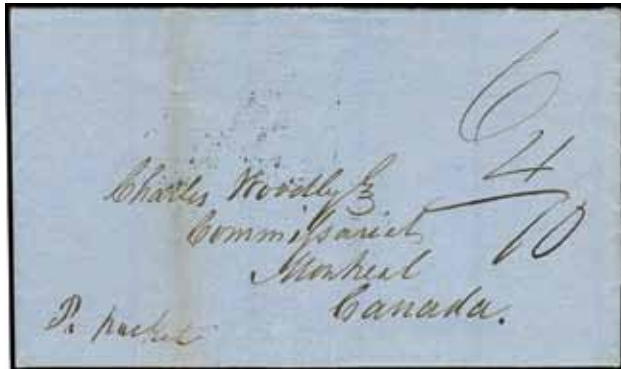 6
4
10
Charles Woodly Esq
Commissariat
Montreal
Canada.
Pr packet